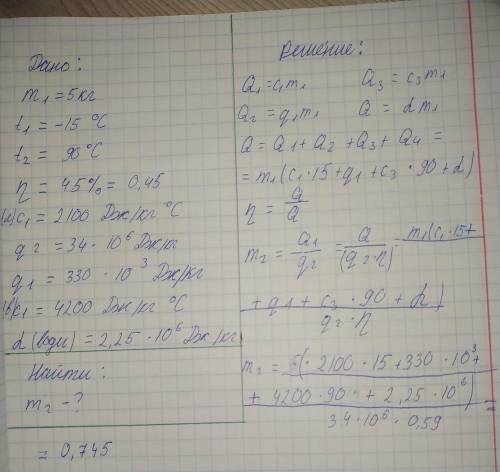 Дано:
m₁ = 5кг
t₁ = -15 °C
t₂ = 90 °C
η = 45% = 0,45
c₁ = 2100 Дж/кг °C
q₂ = 34 · 10⁶ Дж/кг
q₁ = 330 · 10³ Дж/кг
c₁ = 4200 Дж/кг °C
L (воды) = 2,25 · 10⁶ Дж/кг
Найти:
m₂ - ?
= 0,745
Решение:
Q₁ = c₁m₁ Q₃ = c₃m₁
Q₂ = q₁m₁ Q = Lm₁
Q = Q₁ + Q₂ + Q₃ + Q₄ =
= m₁(c₁·15 + q₁ + c₃ · 90 + L)
η = Q/Q
m₂ = Q₁/q₂ = Q/(q₂·η) = m₁(c₁·15+
+ q₁ + c₃ · 90 + L)/q₂ · η
m₂ = 5(· 2100 · 15 + 330 · 10³ +
+ 4200 · 90 + 2,25 · 10⁶)/34 · 10⁶ · 0,59 =